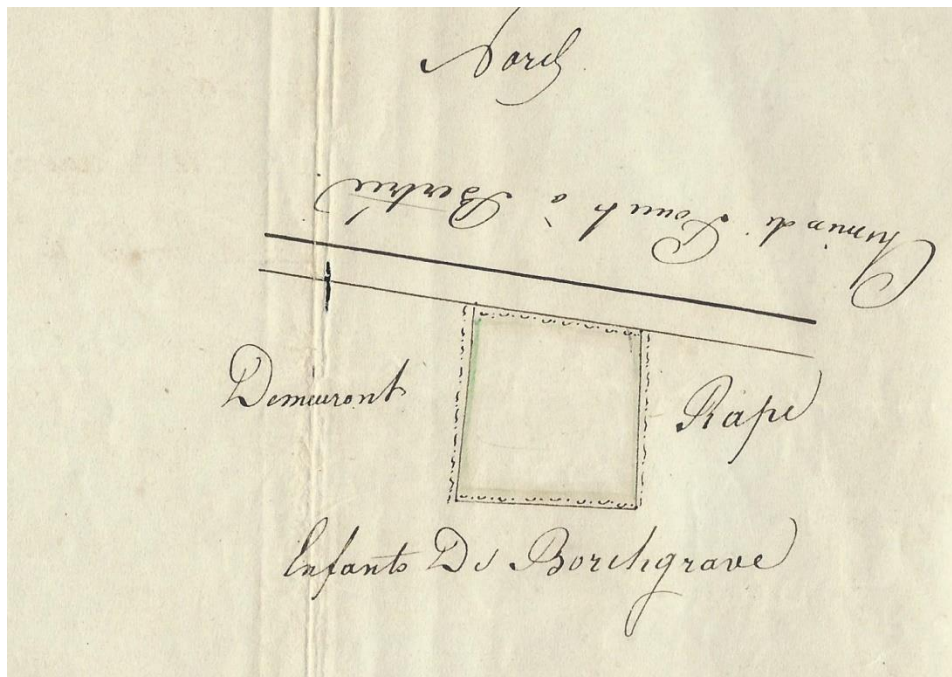 Nord
Chemin de à Bertrée
Demeuront
Rape
Enfants De Borchgrave